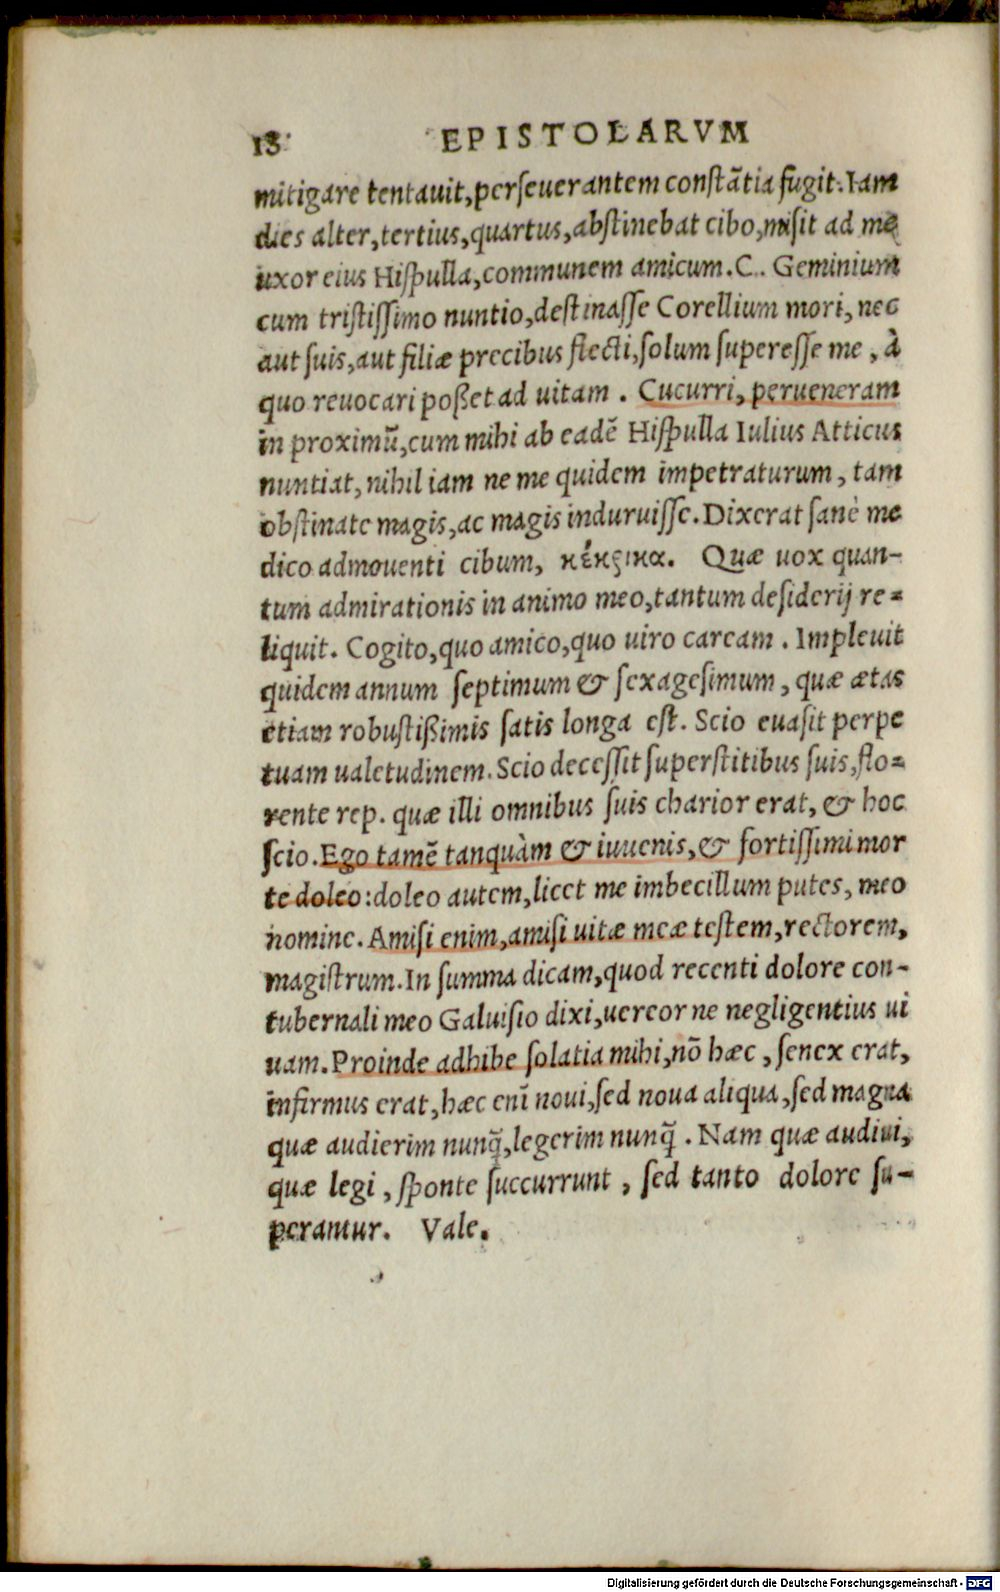 18 EPISTOLARVM
mitigare tentauit,perseuerantem constãtia fugit.Iam
dies alter,tertius,quartus,abstinebat cibo,misit ad me
uxor eius Hispulla,communem amicum.C. Geminium
cum tristissimo nuntio,destinasse Corellium mori, nec
aut suis,aut filiæ precibus flecti,solum superesse me , à
quo reuocari poßet ad uitam . Cucurri, perueneram
in proximũ,cum mihi ab eadẽ Hispulla Iulius Atticus
nuntiat, nihil iam ne me quidem impetraturum , tam
obstinate magis,ac magis induruisse.Dixerat sanè me
dico admouenti cibum, κέκρικα. Quæ uox quan-
tum admirationis in animo meo,tantum desiderij re-
liquit. Cogito,quo amico,quo uiro caream . Impleuit
quidem annum septimum & sexagesimum , quæ ætas
etiam robustißimis satis longa est. Scio euasit perpe
tuam ualetudinem. Scio decessit superstitibus suis,flo-
rente rep. quæ illi omnibus suis charior erat, & hoc
scio. Ego tamẽ tanquàm & iuuenis,& fortissimi mor
te doleo:doleo autem,licet me imbecillum putes, meo
nomine. Amisi enim,amisi uitæ meæ testem,rectorem,
magistrum. In summa dicam,quod recenti dolore con-
tubernali meo Galuisio dixi,uereor ne negligentius ui
uam. Proinde adhibe solatia mihi,nõ hæc , senex erat,
infirmus erat, hæc enĩ noui,sed noua aliqua,sed magna
quæ audierim nunq̃,legerim nunq̃ . Nam quæ audiui,
quæ legi , sponte succurrunt , sed tanto dolore su-
perantur. Vale.
Digitalisierung gefördert durch die Deutsche Forschungsgemeinschaft - DFG